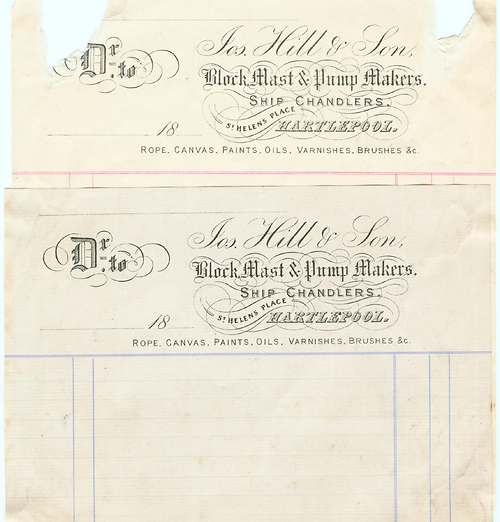 Dr. to
Jos. Hill & Son,
Block, Mast & Pump Makers.
SHIP CHANDLERS,
ST HELENS PLACE
HARTLEPOOL.
18
ROPE, CANVAS, PAINTS, OILS, VARNISHES, BRUSHES &c.
Dr. to
Jos. Hill & Son,
Block, Mast & Pump Makers.
SHIP CHANDLERS,
ST HELENS PLACE
HARTLEPOOL.
18
ROPE, CANVAS, PAINTS, OILS, VARNISHES, BRUSHES &c.